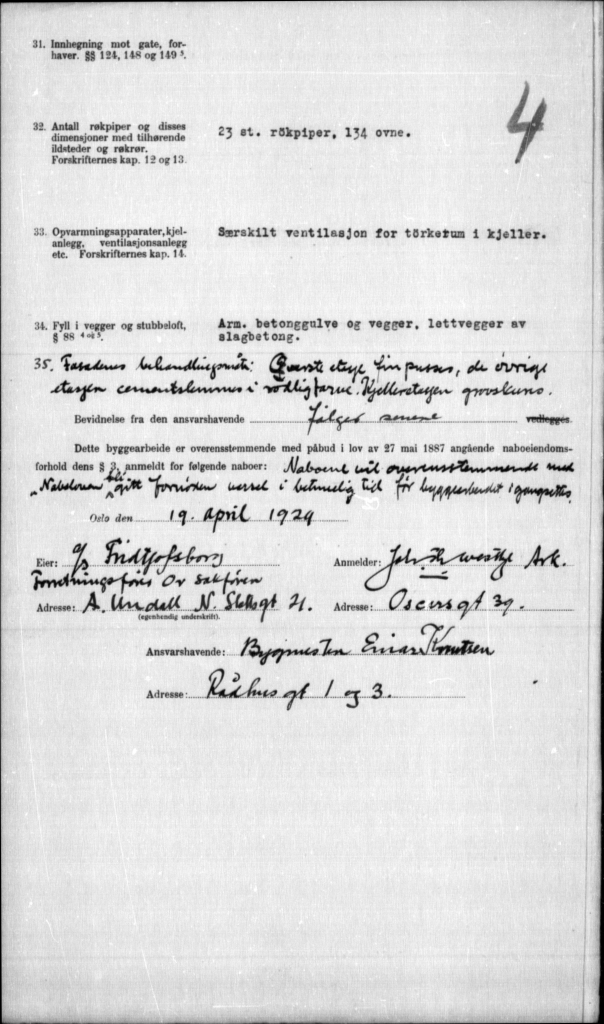 31. Innhegning mot gate, for-
haver. §§ 124, 148 og 149 ⁵.
4
32. Antall røkpiper og disses
dimensjoner med tilhørende
ildsteder og røkrør.
Forskrifternes kap. 12 og 13.
23 st. rökpiper, 134 ovne.
33. Opvarmningsapparater, kjel-
anlegg, ventilasjonsanlegg
etc. Forskrifternes kap. 14.
Særskilt ventilasjon for törkerum i kjeller.
34. Fyll i vegger og stubbeloft,
§ 88 ⁴ og ⁵.
Arm. betonggulve og vegger, lettvegger av
slagbetong.
35. Fasadenes behandlingsmåte: Øverste etage finpusses, de övrige
etagen cementslemmes i rödlig farve. Kjelleretagen
Bevidnelse fra den ansvarshavende følger senere vedlegges.
Dette byggearbeide er overensstemmende med påbud i lov av 27 mai 1887 angående naboeiendoms-
forhold dens § 3, anmeldt for følgende naboer: Naboene vil overensstemmende med
"Naboloven" bli gitt varsel i betimelig tid før byggearbeidet igangsettes.
Oslo den 19. april 1929
Eier: A/S Fridtjofsborg
Forretningsfører Or sakfören
Anmelder: Joh. Westbye Ark.
Adresse: A. Urdall N. Slottsgt 21.
(egenhendig underskrift).
Adresse: Oscarsgt 39.
Ansvarshavende: Byggmesten Einar Knutsen
Adresse: Rådhusgt 1 og 3.